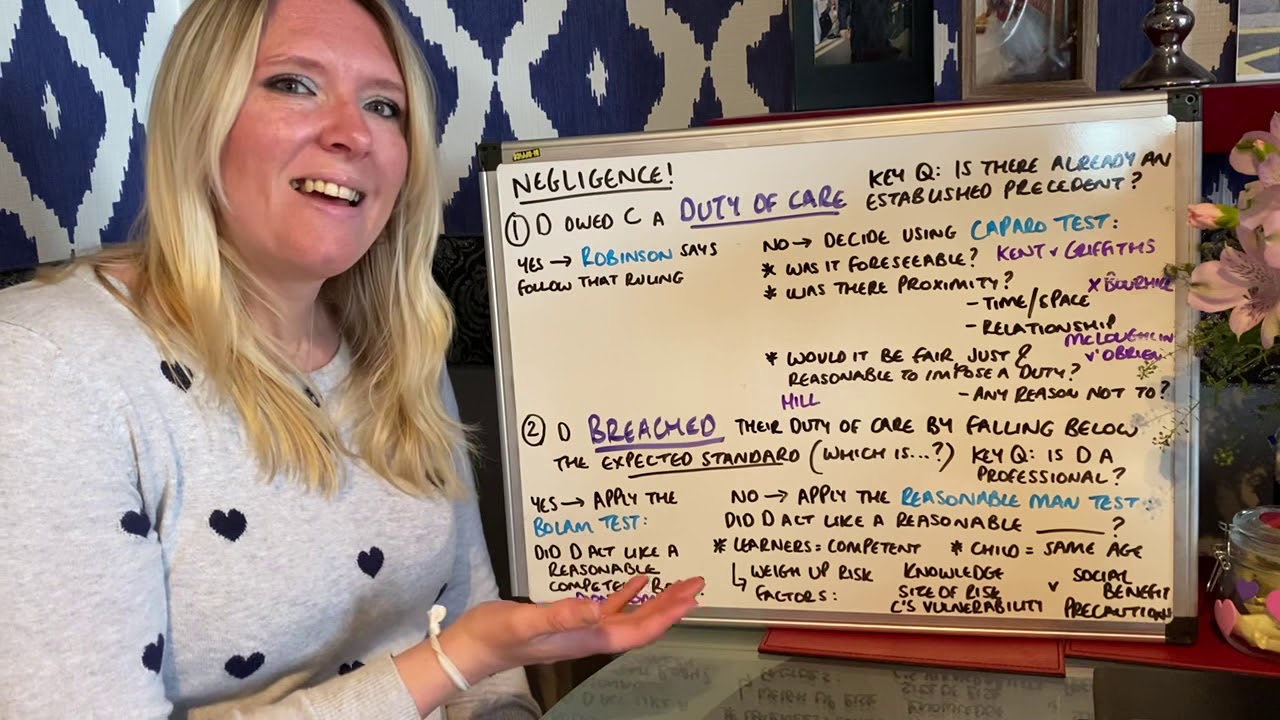 NEGLIGENCE!
① D OWED C A DUTY OF CARE
KEY Q: IS THERE ALREADY AN
ESTABLISHED PRECEDENT?
YES → ROBINSON SAYS
FOLLOW THAT RULING
NO → DECIDE USING CAPARO TEST:
* WAS IT FORESEEABLE? KENT v GRIFFITHS
* WAS THERE PROXIMITY? X BOURHILL
- TIME/SPACE
- RELATIONSHIP
MCLOUGHLIN
v O'BRIEN
* WOULD IT BE FAIR JUST &
REASONABLE TO IMPOSE A DUTY?
HILL - ANY REASON NOT TO?
② D BREACHED THEIR DUTY OF CARE BY FALLING BELOW
THE EXPECTED STANDARD (WHICH IS...?) KEY Q: IS D A
PROFESSIONAL?
YES → APPLY THE
BOLAM TEST:
DID D ACT LIKE A
REASONABLE
NO → APPLY THE REASONABLE MAN TEST:
DID D ACT LIKE A REASONABLE ____?
* LEARNERS = COMPETENT * CHILD = SAME AGE
↳ WEIGH UP RISK
FACTORS:
KNOWLEDGE
SIZE OF RISK
C'S VULNERABILITY
v SOCIAL
BENEFIT
PRECAUTIONS